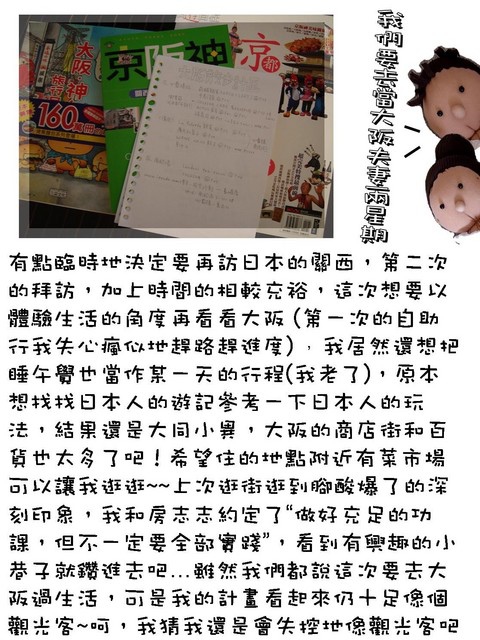 大阪
神
160萬冊
京阪神
京
都
我們要去當大阪夫妻兩星期
有點臨時地決定要再訪日本的關西，第二次
的拜訪，加上時間的相較充裕，這次想要以
體驗生活的角度再看看大阪(第一次的自助
行我失心瘋似地趕路趕進度)，我居然還想把
睡午覺也當作某一天的行程(我老了)，原本
想找找日本人的遊記參考一下日本人的玩
法，結果還是大同小異，大阪的商店街和百
貨也太多了吧！希望住的地點附近有菜市場
可以讓我逛逛~~上次逛街逛到腳酸爆了的深
刻印象，我和房志志約定了“做好充足的功
課，但不一定要全部實踐”，看到有興趣的小
巷子就鑽進去吧...雖然我們都說這次要去大
阪過生活，可是我的計畫看起來仍十足像個
觀光客~呵，我猜我還是會失控地像觀光客吧